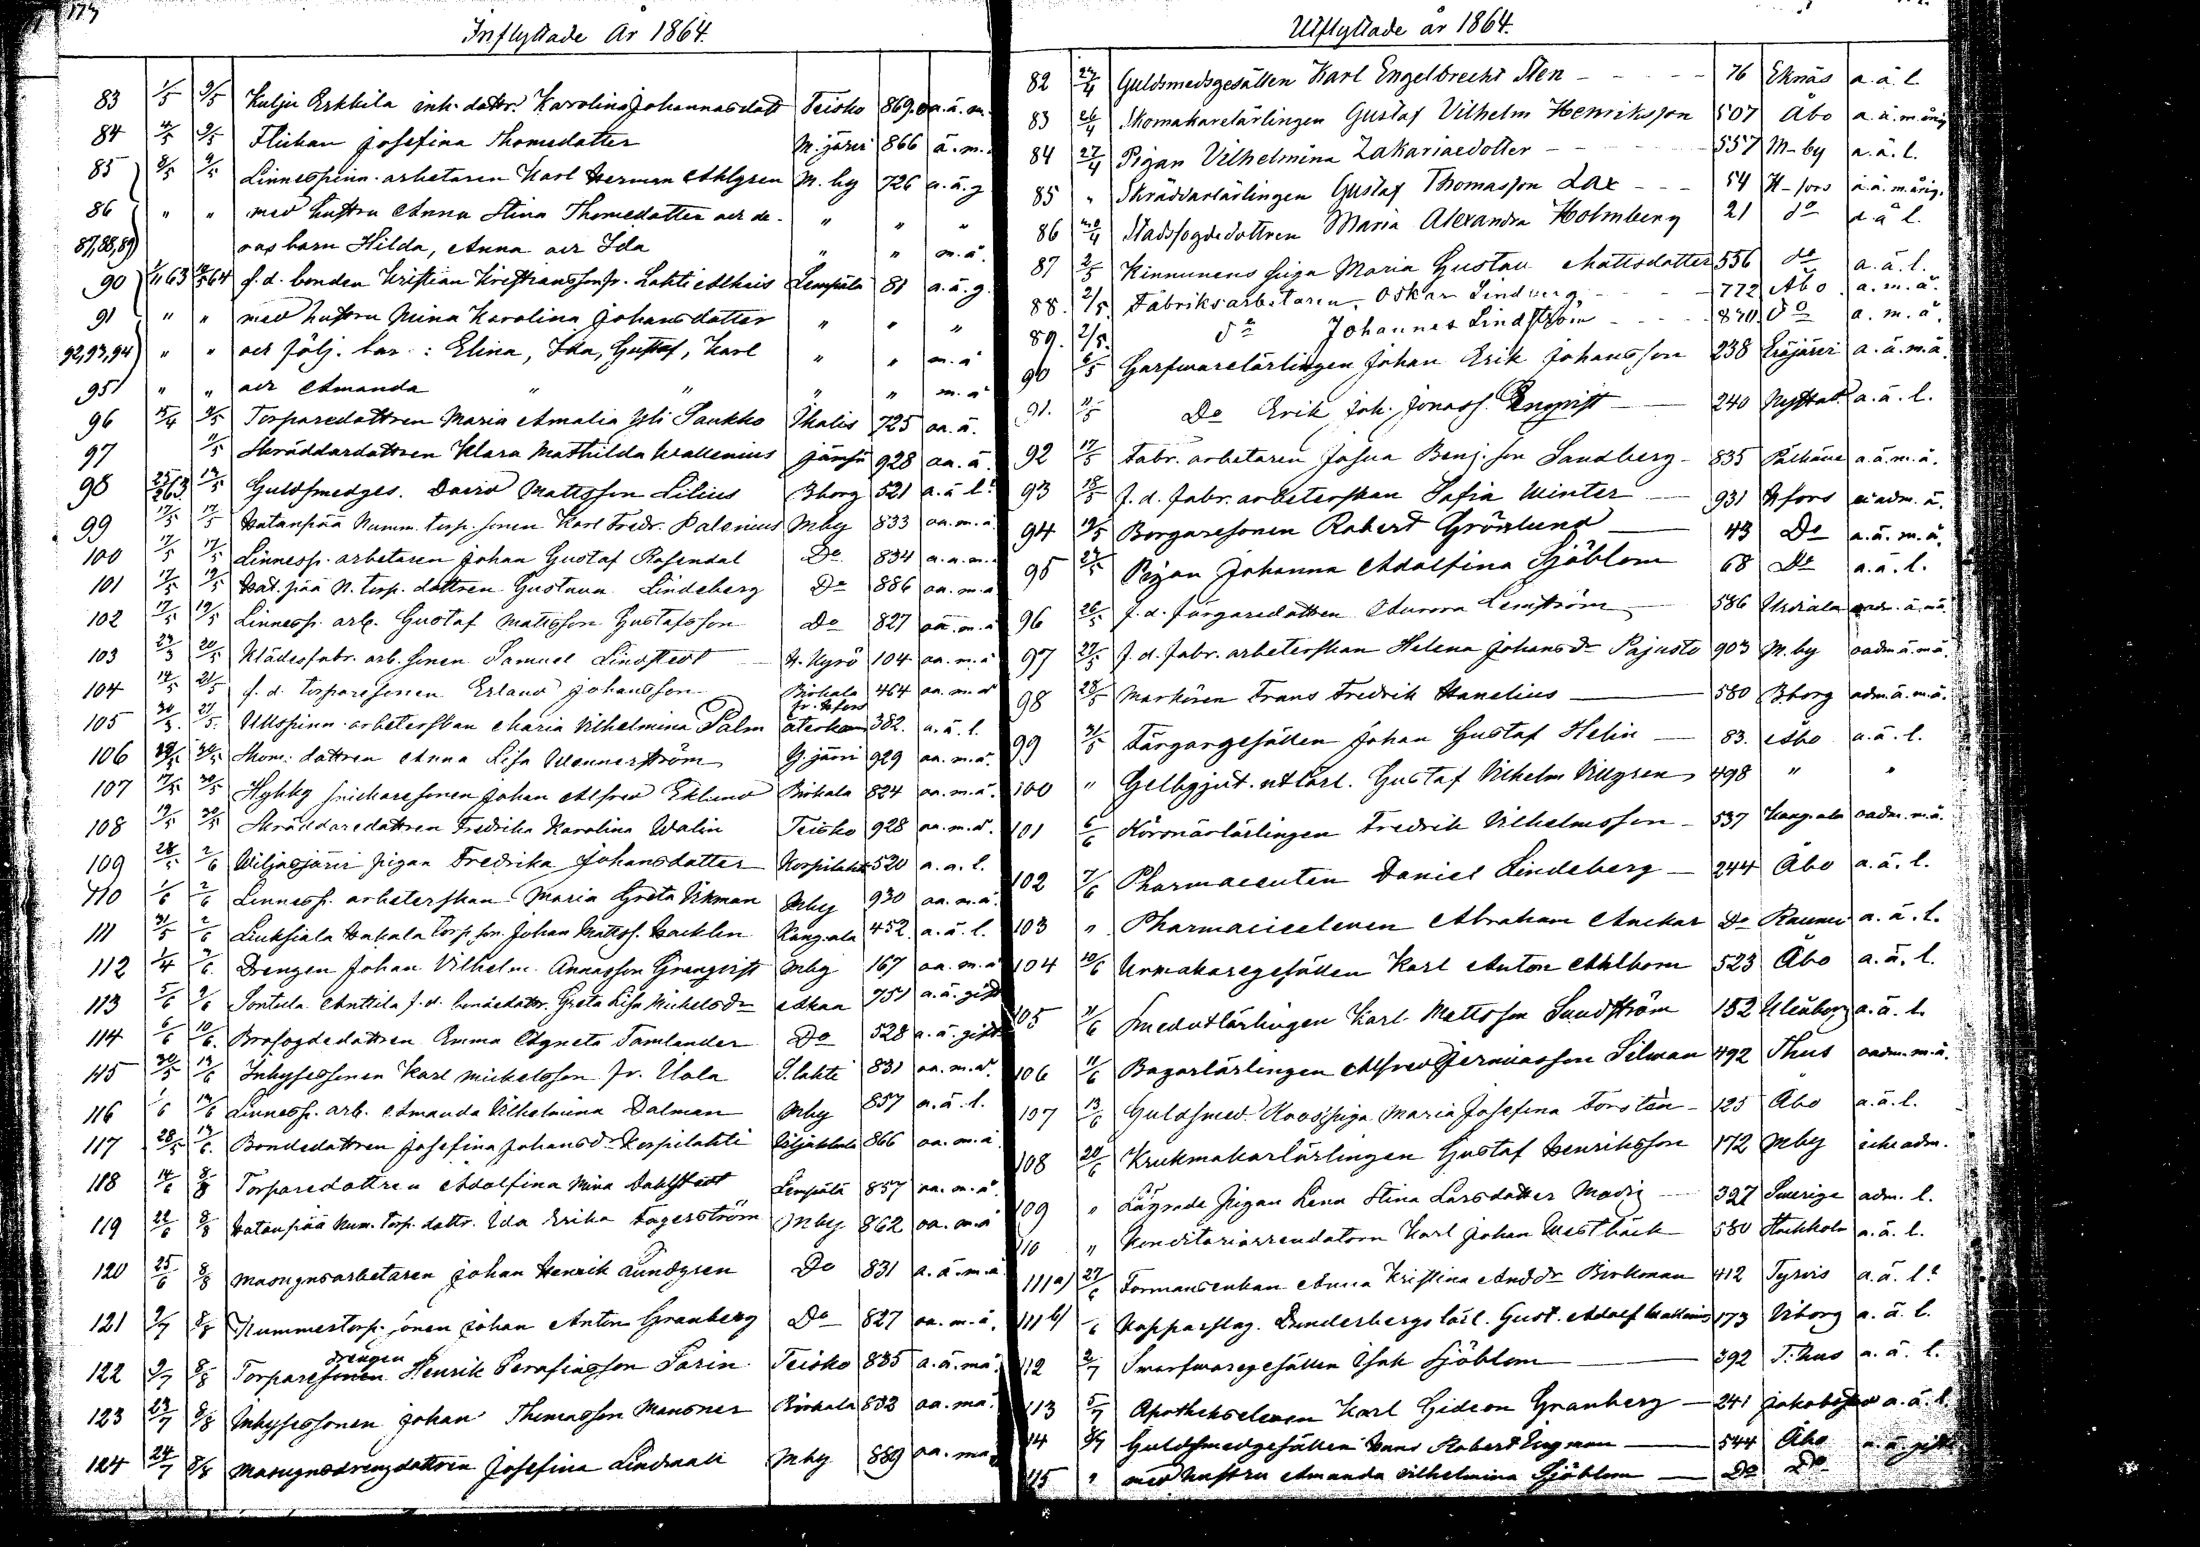 173
Inflyttade År 1864.
83 1/5 9/5 Kulju Erkkila inh. dottr. Karolina Johannasdott Teisko 869 oa.ä.m.
84 4/5 9/5 Flickan Josefina Thomedotter M.järvi 866 ä.m.
85 8/5 9/5 Linnespinn. arbetaren Karl Herman Ahlgren M.by 726 a.ä.g
86 " " med hustru Anna Stina Thomedotter och de- " " "
87,88,89 ras barn Hilda, Anna och Ida " " m.ä.
90 f.d. bonden Kristian Kristiansson fr. Lahti Alhais Lempäla 81 a.ä.g.
91 " " med hustru Mina Karolina Johansdotter " " "
92,93,94 " " och följ. bar: Elina, Ida, Gustaf, Karl " " m.ä
95 " " och Amanda " " " " m.ä
96 15/4 9/5 Torparedottren Maria Amalia Yli Saukko Ikalis 725 oa.ä.
97 11/5 Skräddardottren Klara Mathilda Wallenius Jämsä 928 oa.ä.
98 12/5 Guldsmedges. David Mattsson Lilius Bborg 521 a.ä l.
99 17/5 17/5 Hatanpää Numm. torp. sonen Karl Fredr. Palonius Mby 833 oa.m.ä.
100 17/5 17/5 Linnesp. arbetaren Johan Gustaf Rosendal Do 834 a.a.m.
101 17/5 19/5 Hat.pää N. torp. dottren Gustava Lindeberg Do 886 oa.m.ä
102 17/5 19/5 Linnesp. arb. Gustaf Mattsson Gustafsson Do 827 oa.m.ä
103 23/3 20/5 Klädesfabr. arb. sonen Samuel Lindstedt H.Kyrö 104 oa.m.ä
104 14/5 21/5 f.d. torparesonen Erland Johansson Birkala 464 oa.m.ä
fr. Hfors
105 30/3 21/5 Ullspinn. arbeterskan Maria Vilhelmina Palm återkom 382. a.ä.l.
106 Skom. dottren Anna Lisa Wennerström G.järvi 929 oa.m.ä.
107 17/5 30/5 Hyhky snickaresonen Johan Alfred Eklund Birkala 824 oa.m.ä.
108 19/5 30/5 Skräddaredottren Fredrika Karolina Walin Teisko 928 oa.m.ä.
109 28/5 2/6 Wiljasjärvi pigan Fredrika Johansdotter Korpilahti 520 a.a.l.
110 1/6 2/6 Linnesp. arbeterskan Maria Greta Vikman Mby 930 oa.m.ä.
111 31/5 2/6 Liuksiala Hakala torp.son. Johan Mattss. Hacklin Kangsala 452 a.ä.l.
112 1/4 7/6 Drengen Johan Vilhelm Annasson Granqvist Mby 167 oa.m.ä
113 5/6 9/6 Sontula Anttila f.d. Greta Lisa Mickelsdr Akkas 751 a.ä.gift
114 6/6 10/6 Brofogdedottren Emma Agneta Tamlander Do 528 a.ä.gift
115 30/5 13/6 Inhysessonen Karl Mickelsson fr. Uola S.lahti 831 oa.m.ä.
116 1/6 13/6 Linnesp. arb. Amanda Vilhelmina Dalman Mby 857 a.ä.l.
117 28/5 13/6 Bondedottren Josefina Johansdr Korpilahti 866 oa.m.ä.
118 14/6 8/8 Torparedottren Adolfina Mina Dahlstedt Lempälä 857 oa.m.ä.
119 22/6 8/8 Hatanpää Num. torp. dottr. Ida Erika Fagerström Mby 862 oa.m.ä
120 25/6 8/8 Masugnsarbetaren Johan Henrik Lundgren Do 831 a.ä.m.ä
121 2/7 8/8 Nummestorp. sonen Johan Anton Granberg Do 827 oa.m.ä.
drengen
122 9/7 8/8 Torparesonen Henrik Serafinsson Sarin Teisko 835 a.ä.mä
123 23/7 8/8 Inhysessonen Johan Thomasson Mansner Birkala 832 oa.mä.
124 24/7 8/8 Masugnsdrengdottren Josefina Lindvall Mby 889 oa.mä
Utflyttade år 1864.
82 24/4 Guldsmedsgesällen Karl Engelbrecht Sten 76 Eknäs a.ä l.
83 26/4 Skomakarelärlingen Gustaf Vilhelm Henriksson 507 Åbo a.ä.m.ånig
84 27/4 Pigan Vilhelmina Zakariaedotter 557 M-by a.ä.l.
85 " Skräddarlärlingen Gustaf Thomasson Lax 54 H-fors a.ä.m.årig.
86 Stadsfogdedottren Maria Alexandra Holmberg 21 do a.ä l.
87 2/5 Kinnunens piga Maria Gustava Mattsdotter 556 do a.ä.l.
88. 2/5. Fabriksarbetaren Oskar Lindberg 772 Åbo a.m.ä.
89. 2/5. do Johannes Lindström 870. do a.m.ä.
90 6/5 Garfvarelärlingen Johan Erik Johansson 238 Eräjärvi a.ä.m.ä.
91. 11/5 Do Erik Joh. Jonass. Engqvist 240 Nystad a.ä.l.
92 17/5 Fabr. arbetaren Josua Benj. son Sandberg 835 Pälkäne a.ä.m.ä.
93 18/5 f.d. fabr. arbeterskan Sofia Winter 931 Hfors ei adm. ä.
94 19/5 Borgaresonen Robert Grönlund 43 Do a.ä.m.ä.
95 23/5 Pigan Johanna Adolfina Sjöblom 68 Do a.ä.l.
96 26/5 f.d. färgaredottren Aurora Lemström 586 Urdiala
97 27/5 f.d. fabr. arbeterskan Helena Johansdr Pajusto 903 M.by oadm ä.m.ä.
98 28/5 Markören Frans Fredrik Hanelius 580 Bborg adm.ä.m.ä.
99 31/5 Färgargesällen Johan Gustaf Helin 83. Åbo a.ä.l.
100 " Gelbgjut. utlärl. Gustaf Vilhelm Villgren 498 " "
101 6/6 Körsnärlärlingen Fredrik Vilhelmsson 537 Kangsala oadm. m.ä.
102 7/6 Pharmaceuten Daniel Lindeberg 244 Åbo a.ä.l.
103 " Pharmacieeleven Abraham Anckar Do Raumo a.ä.l.
104 10/6 Urmakaregesällen Karl Anton Ahlbom 523 Åbo a.ä.l.
105 11/6 Smedutlärlingen Karl Mattsson Sundström 152 Uleåborg a.ä.l.
106 11/6 Bagarlärlingen Alfred Jeremiasson Silwan 492 Thus oadm.m.ä.
107 13/6 Guldsmed Roos's piga Maria Josefina Forstén 125 Åbo a.ä.l.
108 20/6 Krukmakarlärlingen Gustaf Henriksson 172 Mby icke adm.
109 " Lägrade pigan Lena Stina Larsdotter 327 Sverige adm. l.
110 " Konditoriarrendatorn Karl Johan Westbäck 580 Stockholm a.ä.l.
111 a) 27/6 Formansenkan Anna Kristina Andsdr Birkman 412 Tyrvis a.ä.l.
111 b) Kopparslag. Dunderbergs lärl. Gust. Adolf Wallenius 173 Viborg a.ä.l.
112 2/7 Svarfvaregesällen Isak Sjöblom 392 T:hus a.ä.l.
113 5/7 Apothekseleven Karl Gideon Granberg 241 Jakobstad a.ä.l.
114 Guldsmedgesällen Hans Robert Engman 544 Åbo a.ä.gift
115 " med hustru Amanda Vilhelmina Sjöblom Do Do